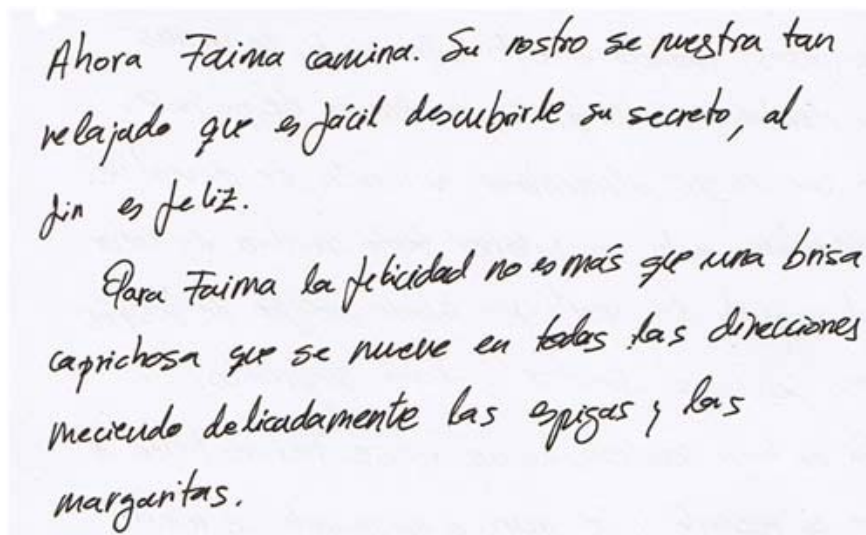 Ahora Faima camina. Su rostro se muestra tan
relajado que es fácil descubrirle su secreto, al
fin es feliz.
Para Faima la felicidad no es más que una brisa
caprichosa que se mueve en todas las direcciones
meciendo delicadamente las espigas y las
margaritas.